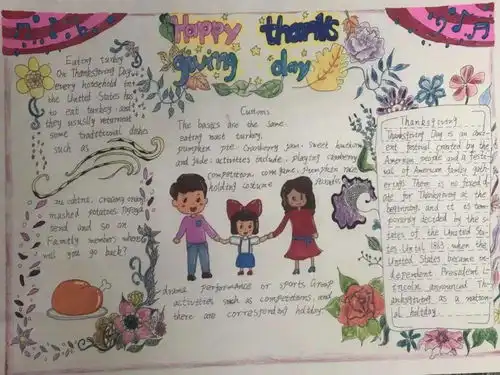 Happy thanks
giving day
Eating turkey
On Thanksgiving Day
every household in
the United States has
to eat turkey, and
they usually
some traditional dishes
such as
creamy
mashed potatoes,
tend and so on
Family members where
will you go back?
Customs
The basics are the same.
eating roast turkey,
pumpkin pie, cranberry jam, sweet
and side, activities include, playing cranberry
competition, corn game, pumpkin race,
holding costume parades
drama performance or sports group
activities such as competitions, and
there are corresponding holiday
Thanksgiving
Thanksgiving Day is an an-
cient festival created by the
American people and a festi-
val of American family gath-
erings There is no fixed d
ate for Thanksgiving in the
beginning, and it is tem-
porarily decided by the s-
tates of the United Sta-
tes Until 1863 when the
United States became in-
dependent President L-
incoln announced Tha-
nksgiving as a nation-
al holiday